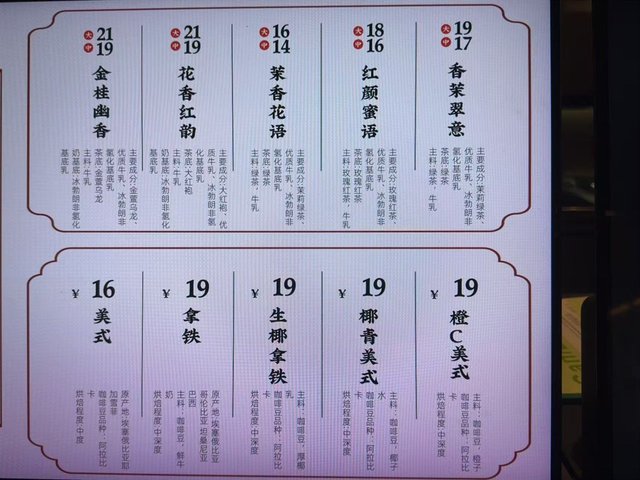 大19
中17
香茉翠意
主要成分:茉莉绿茶、
优质牛乳、冰勃朗非
氢化基底乳
茶底:绿茶
主料:绿茶、牛乳
大18
中16
红颜蜜语
主要成分:玫瑰红茶、
优质牛乳、冰勃朗非
氢化基底乳
主料:玫瑰红茶、牛乳
大16
中14
茉香花语
主要成分:茉莉绿茶、
优质牛乳、冰勃朗非
氢化基底乳
茶底:绿茶
主料:绿茶、牛乳
大21
中19
花香红韵
主要成分:大红袍、优
质牛乳、冰勃朗非氢
化基底乳
茶底:大红袍
主料:牛乳
奶基底:冰勃朗非氢化
基底乳
大21
中19
金桂幽香
主要成分:金萱乌龙、
优质牛乳、冰勃朗非
氢化基底乳
茶底:金萱乌龙
主料:牛乳
奶基底:冰勃朗非氢化
基底乳
¥19
橙C美式
主料:咖啡豆、橙子
咖啡豆品种:阿拉比
卡
烘焙程度:中深度
¥19
椰青美式
主料:咖啡豆、椰子
水
咖啡豆品种:阿拉比
卡
烘焙程度:中深度
¥19
生椰拿铁
主料:咖啡豆、厚椰
乳
咖啡豆品种:阿拉比
卡
烘焙程度:中深度
¥19
拿铁
原产地:埃塞俄比亚
哥伦比亚 坦桑尼亚
巴西
主料:咖啡豆、鲜牛
奶
烘焙程度:中深度
¥16
美式
原产地:埃塞俄比亚耶
加雪菲
咖啡豆品种:阿拉比
卡
烘焙程度:中度